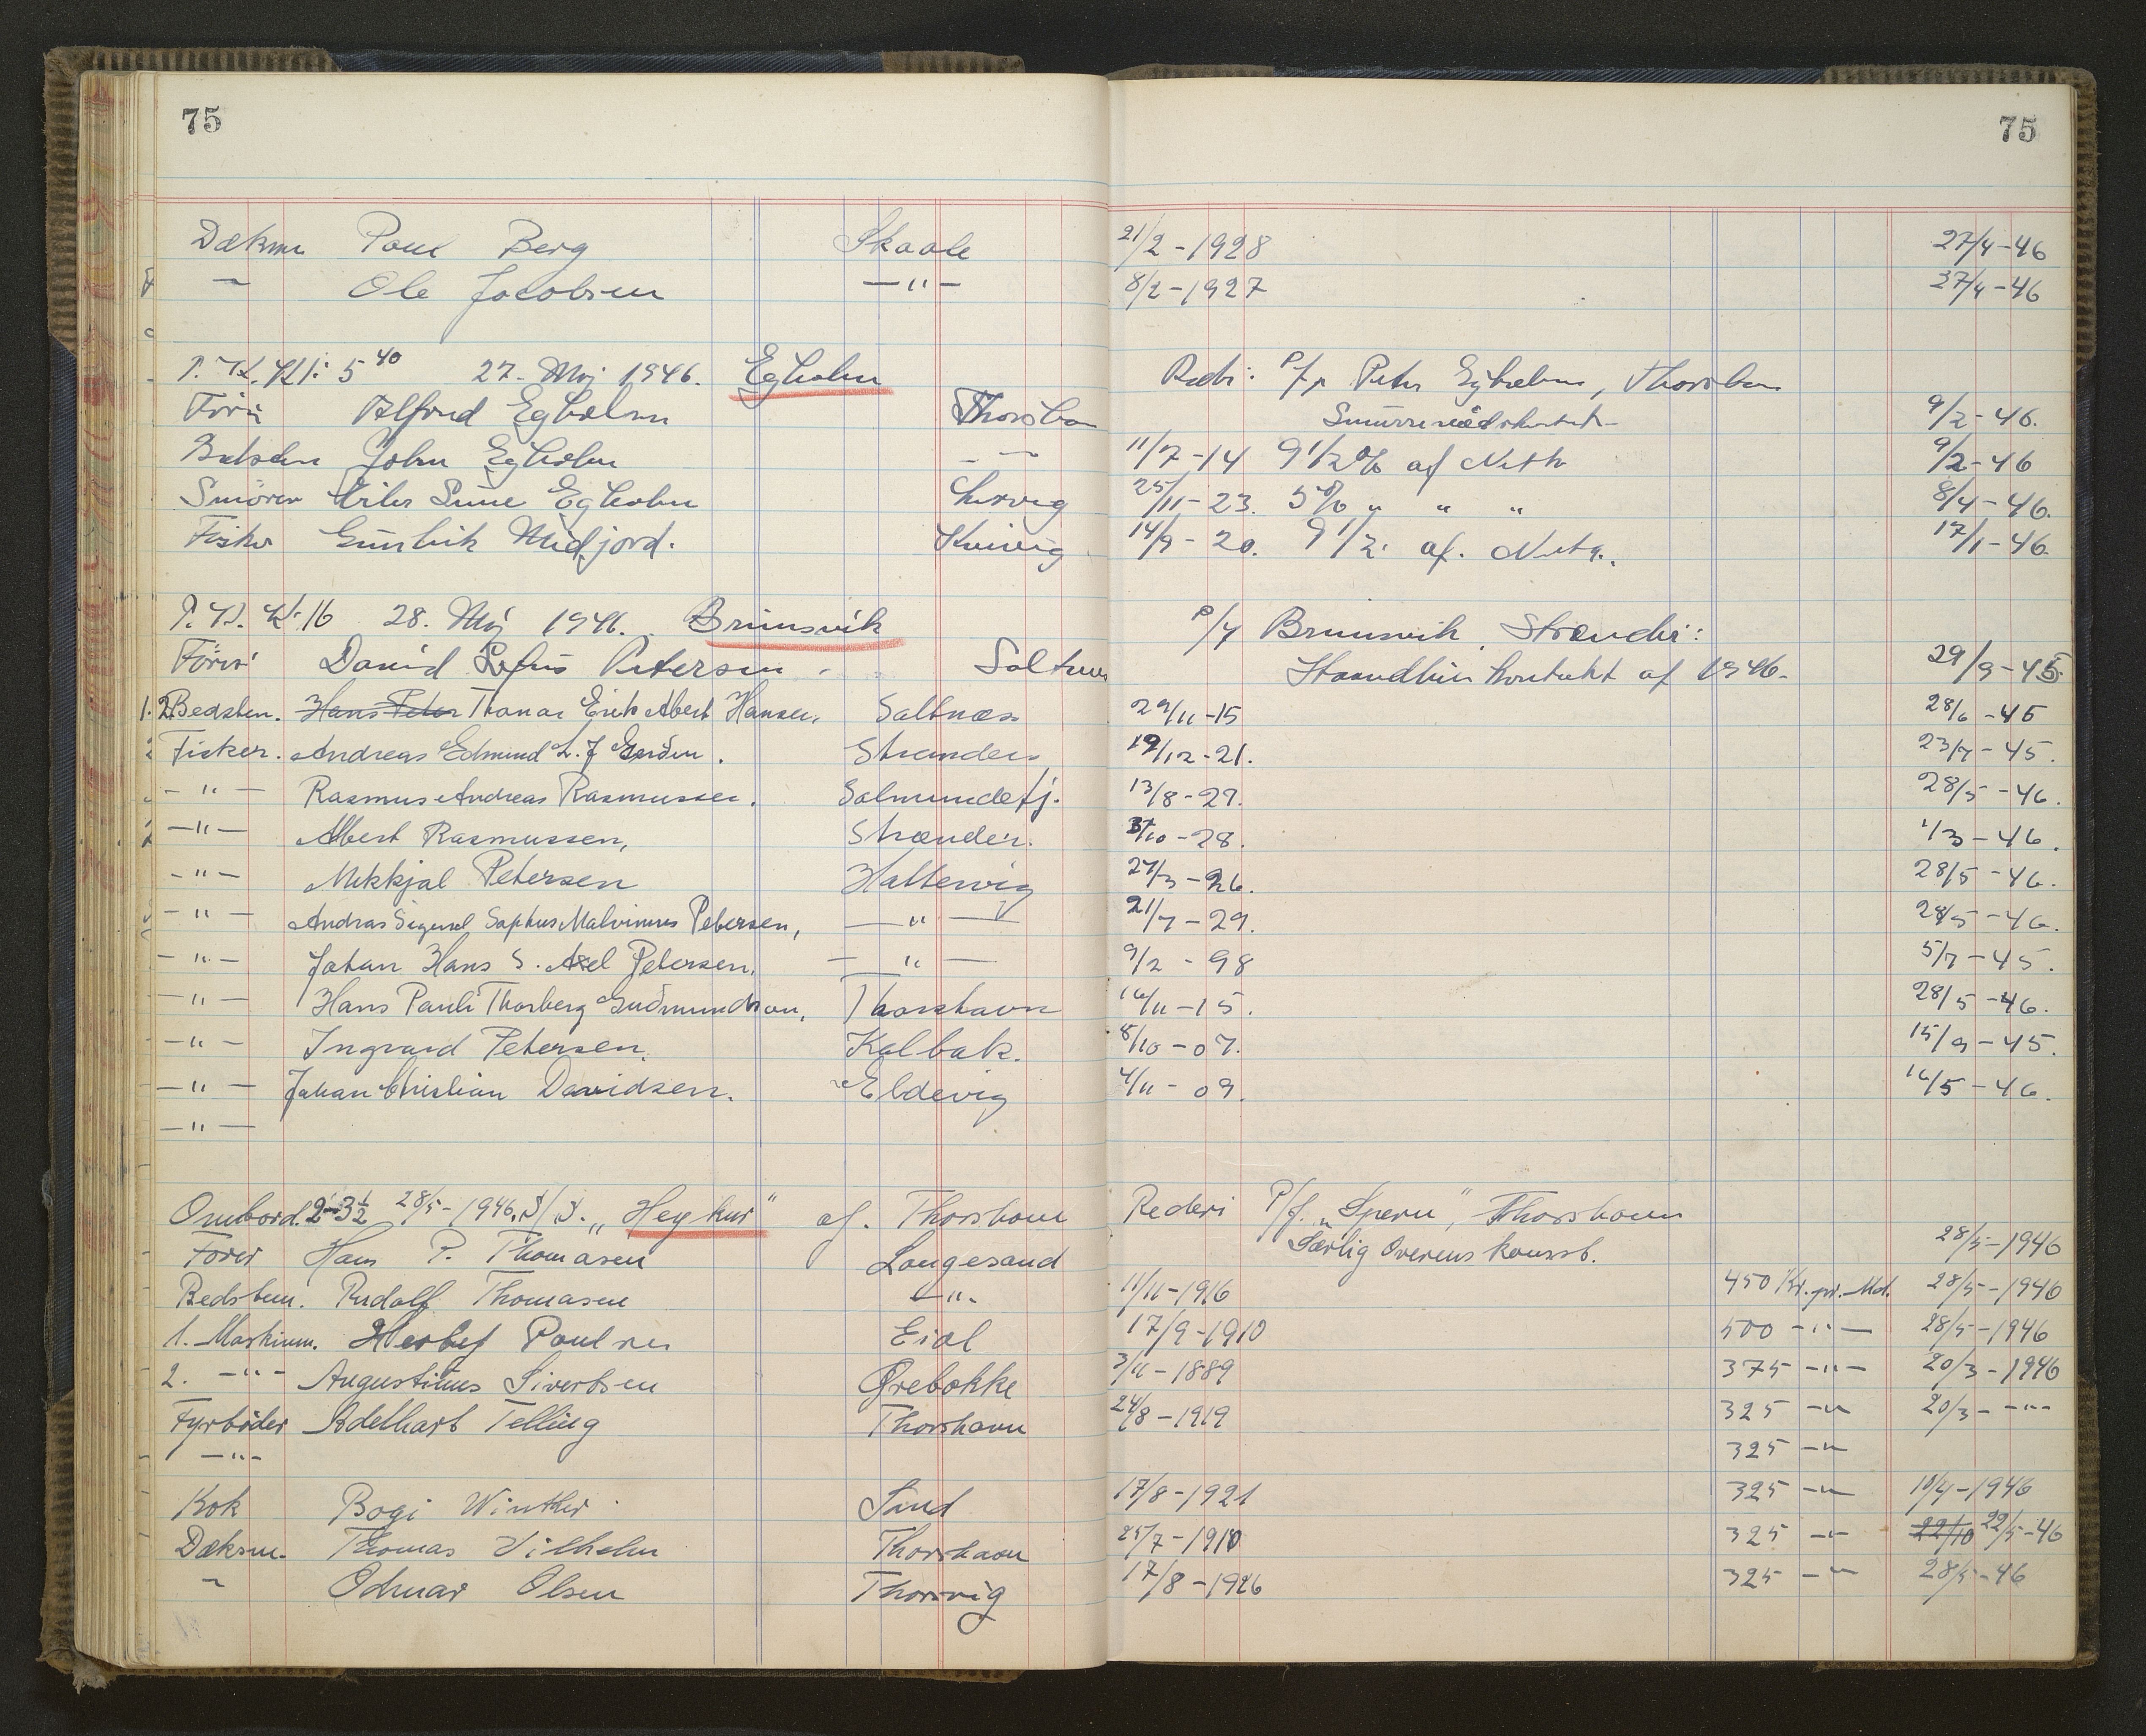 75 75
Dækm Poul Berg Skaale 21/2 - 1928 27/4 - 46
" Ole Jacobsen — " — 8/2 - 1927 27/4 - 46
Kl: 5 40 27. Maj 1946. Egholm Redr: P/f Peter Egholm, Thorshavn
Förer Alfred Egholm Thorshavn 9/2 - 46.
Bedstem John Egholm — — 11/7 - 14 9 1/2 % af Netto 9/2 - 46
Smörer Sune Egholm Lervig 25/11 - 23. 5 % " " " 8/4 - 46.
Fisker Gunleik Midjord. Kvivig 14/9 - 20. 9 1/2 af. Netto. 17/1 - 46
Kl. 16 28. Maj 1946. Brunsvik P/f Brunsvik, Strænder:
Förer David Petersen Saltnes Kontrakt af 1946. 29/9 - 45
Bedstem. ~~Hans Peter~~ Thomas Erik Albert Hansen, Saltnæs 29/11 - 15 28/6 - 45
Fisker. Andreas Edmund L. J. Strænder 19/12 - 21. 23/7 - 45.
— " — Rasmus Andreas Rasmussen. Salmundefj. 13/8 - 29. 28/5 - 46.
— " — Albert Rasmussen, Strænder. 31/10 - 28. 1/3 - 46.
— " — Mikkjal Petersen Haltervig 27/3 - 26. 28/5 - 46.
— " — Andras Sigurd Sophus Malvinus Petersen, — " — 21/7 - 29. 28/5 - 46.
— " — Johan Hans S. Axel Petersen, — " — 9/2 - 98 5/7 - 45.
— " — Hans Pauli Thorberg Guðmundson, Thorshavn 16/11 - 15. 28/5 - 46.
— " — Ingvard Petersen. Kalbak. 8/10 - 07. 15/9 - 45.
— " — Johan Christian Davidsen. Eldevig 4/11 - 09. 16/5 - 46.
— " —
Ombord. 2-3½ 28/5 - 1946, S/S. „Heykur" af. Thorshavn Rederi P/f. „Spern", Thorshavn
Fører Hans P. Thomasen Langesand Særlig Overenskomst. 28/5 - 1946
Bedstem. Rudolf Thomasen — " - 11/11 - 1916 450 Kr. pr. Md. 28/5 - 1946
1. Maskinm. Poulsen Eidi 17/9 - 1910 500 - " — 28/5 - 1946
2. — " — Augustinus Sivertsen Ørebakke 3/11 - 1889 375 - " — 20/3 - 1946
Fyrbøder Adelhart Telling Thorshavn 24/8 - 1919 325 - " 20/3 - - " -
— " — 325 - "
Kok Bogi Winther Sund 17/8 - 1921 325 - " 10/4 - 1946
Dæksm. Thomas Vilhelm Thorshavn 25/7 - 1910 325 - " ~~22/10~~ 22/5 - 46
" Odmar Olsen Thorsvig 17/8 - 1926 325 - " 28/5 - 46